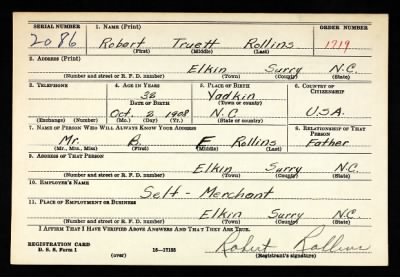 SERIAL NUMBER 1. NAME (Print) ORDER NUMBER
2086 Robert Truett Rollins 1719
(First) (Middle) (Last)
2. ADDRESS (Print)
Elkin Surry N.C.
(Number and street or R. F. D. number) (Town) (County) (State)
3. TELEPHONE 4. AGE IN YEARS 5. PLACE OF BIRTH 6. COUNTRY OF CITIZENSHIP
32 Yadkin
DATE OF BIRTH (Town or county)
Oct. 2 1908 N.C. U.S.A.
(Exchange) (Number) (Mo.) (Day) (Yr.) (State or country)
7. NAME OF PERSON WHO WILL ALWAYS KNOW YOUR ADDRESS 8. RELATIONSHIP OF THAT PERSON
Mr. B. F Rollins Father
(Mr., Mrs., Miss) (First) (Middle) (Last)
9. ADDRESS OF THAT PERSON
Elkin Surry N.C.
(Number and street or R. F. D. number) (Town) (County) (State)
10. EMPLOYER'S NAME
Self - Merchant
11. PLACE OF EMPLOYMENT OR BUSINESS
Elkin Surry N.C.
(Number and street or R. F. D. number) (Town) (County) (State)
I AFFIRM THAT I HAVE VERIFIED ABOVE ANSWERS AND THAT THEY ARE TRUE.
REGISTRATION CARD
D. S. S. Form 1 (over) 16-17105 Robert Rollins
(Registrant's signature)